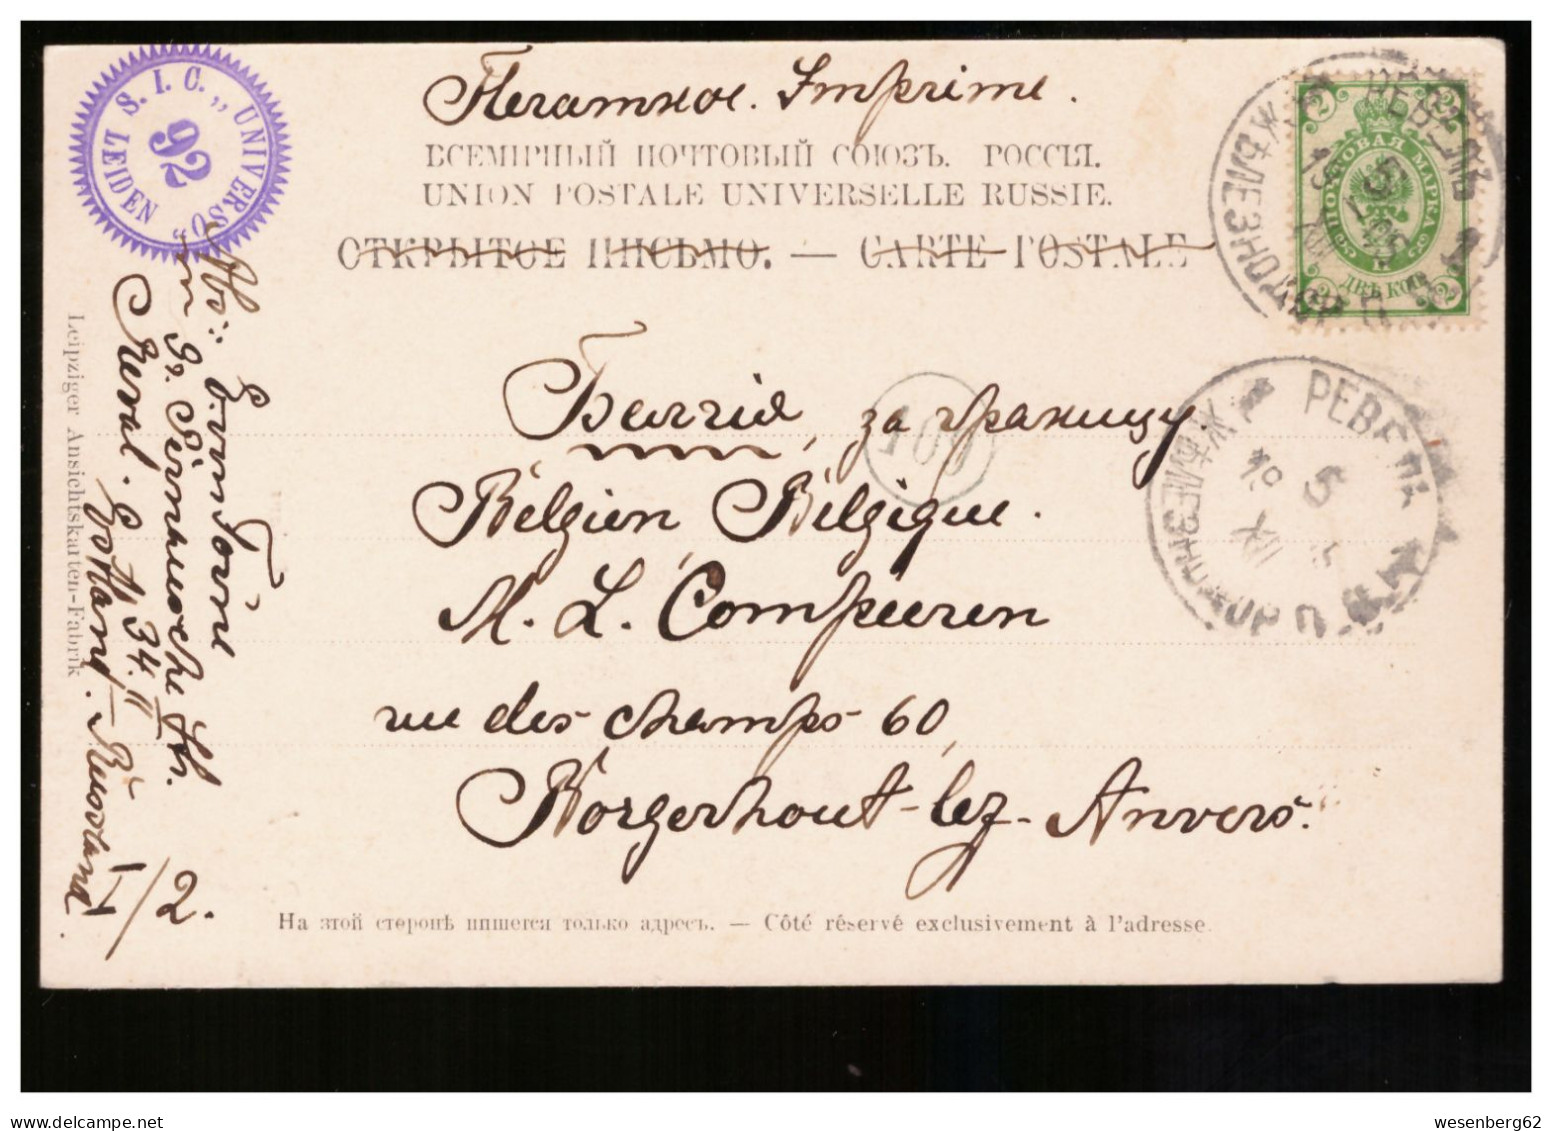 Печатное. Imprimé.
ВСЕМІРНЫЙ ПОЧТОВЫЙ СОЮЗЪ. РОССІЯ.
UNION POSTALE UNIVERSELLE RUSSIE.
ОТКРЫТОЕ ПИСЬМО. — CARTE POSTALE
S. I. C. „UNIVERSO“
92
LEIDEN
РЕВЕЛЬ
5
ЖЕЛѢЗНОДОР. П.
ПОЧТОВАЯ МАРКА
2 2
ДВѢ КОП.
2 2
Бельгія, за границу.
100
Belgien Belgique.
M. L. Compeeren
rue des champs 60,
Borgerhout-lez-Anvers.
РЕВЕЛЬ
5
XII
Abs: Erwin
in Gr. Pernausche Str.
Reval. 34. II
Estland. Russland
I/2.
Leipziger Ansichtskarten-Fabrik
На этой сторонѣ пишется только адресъ. — Côté réservé exclusivement à l'adresse.
wesenberg62